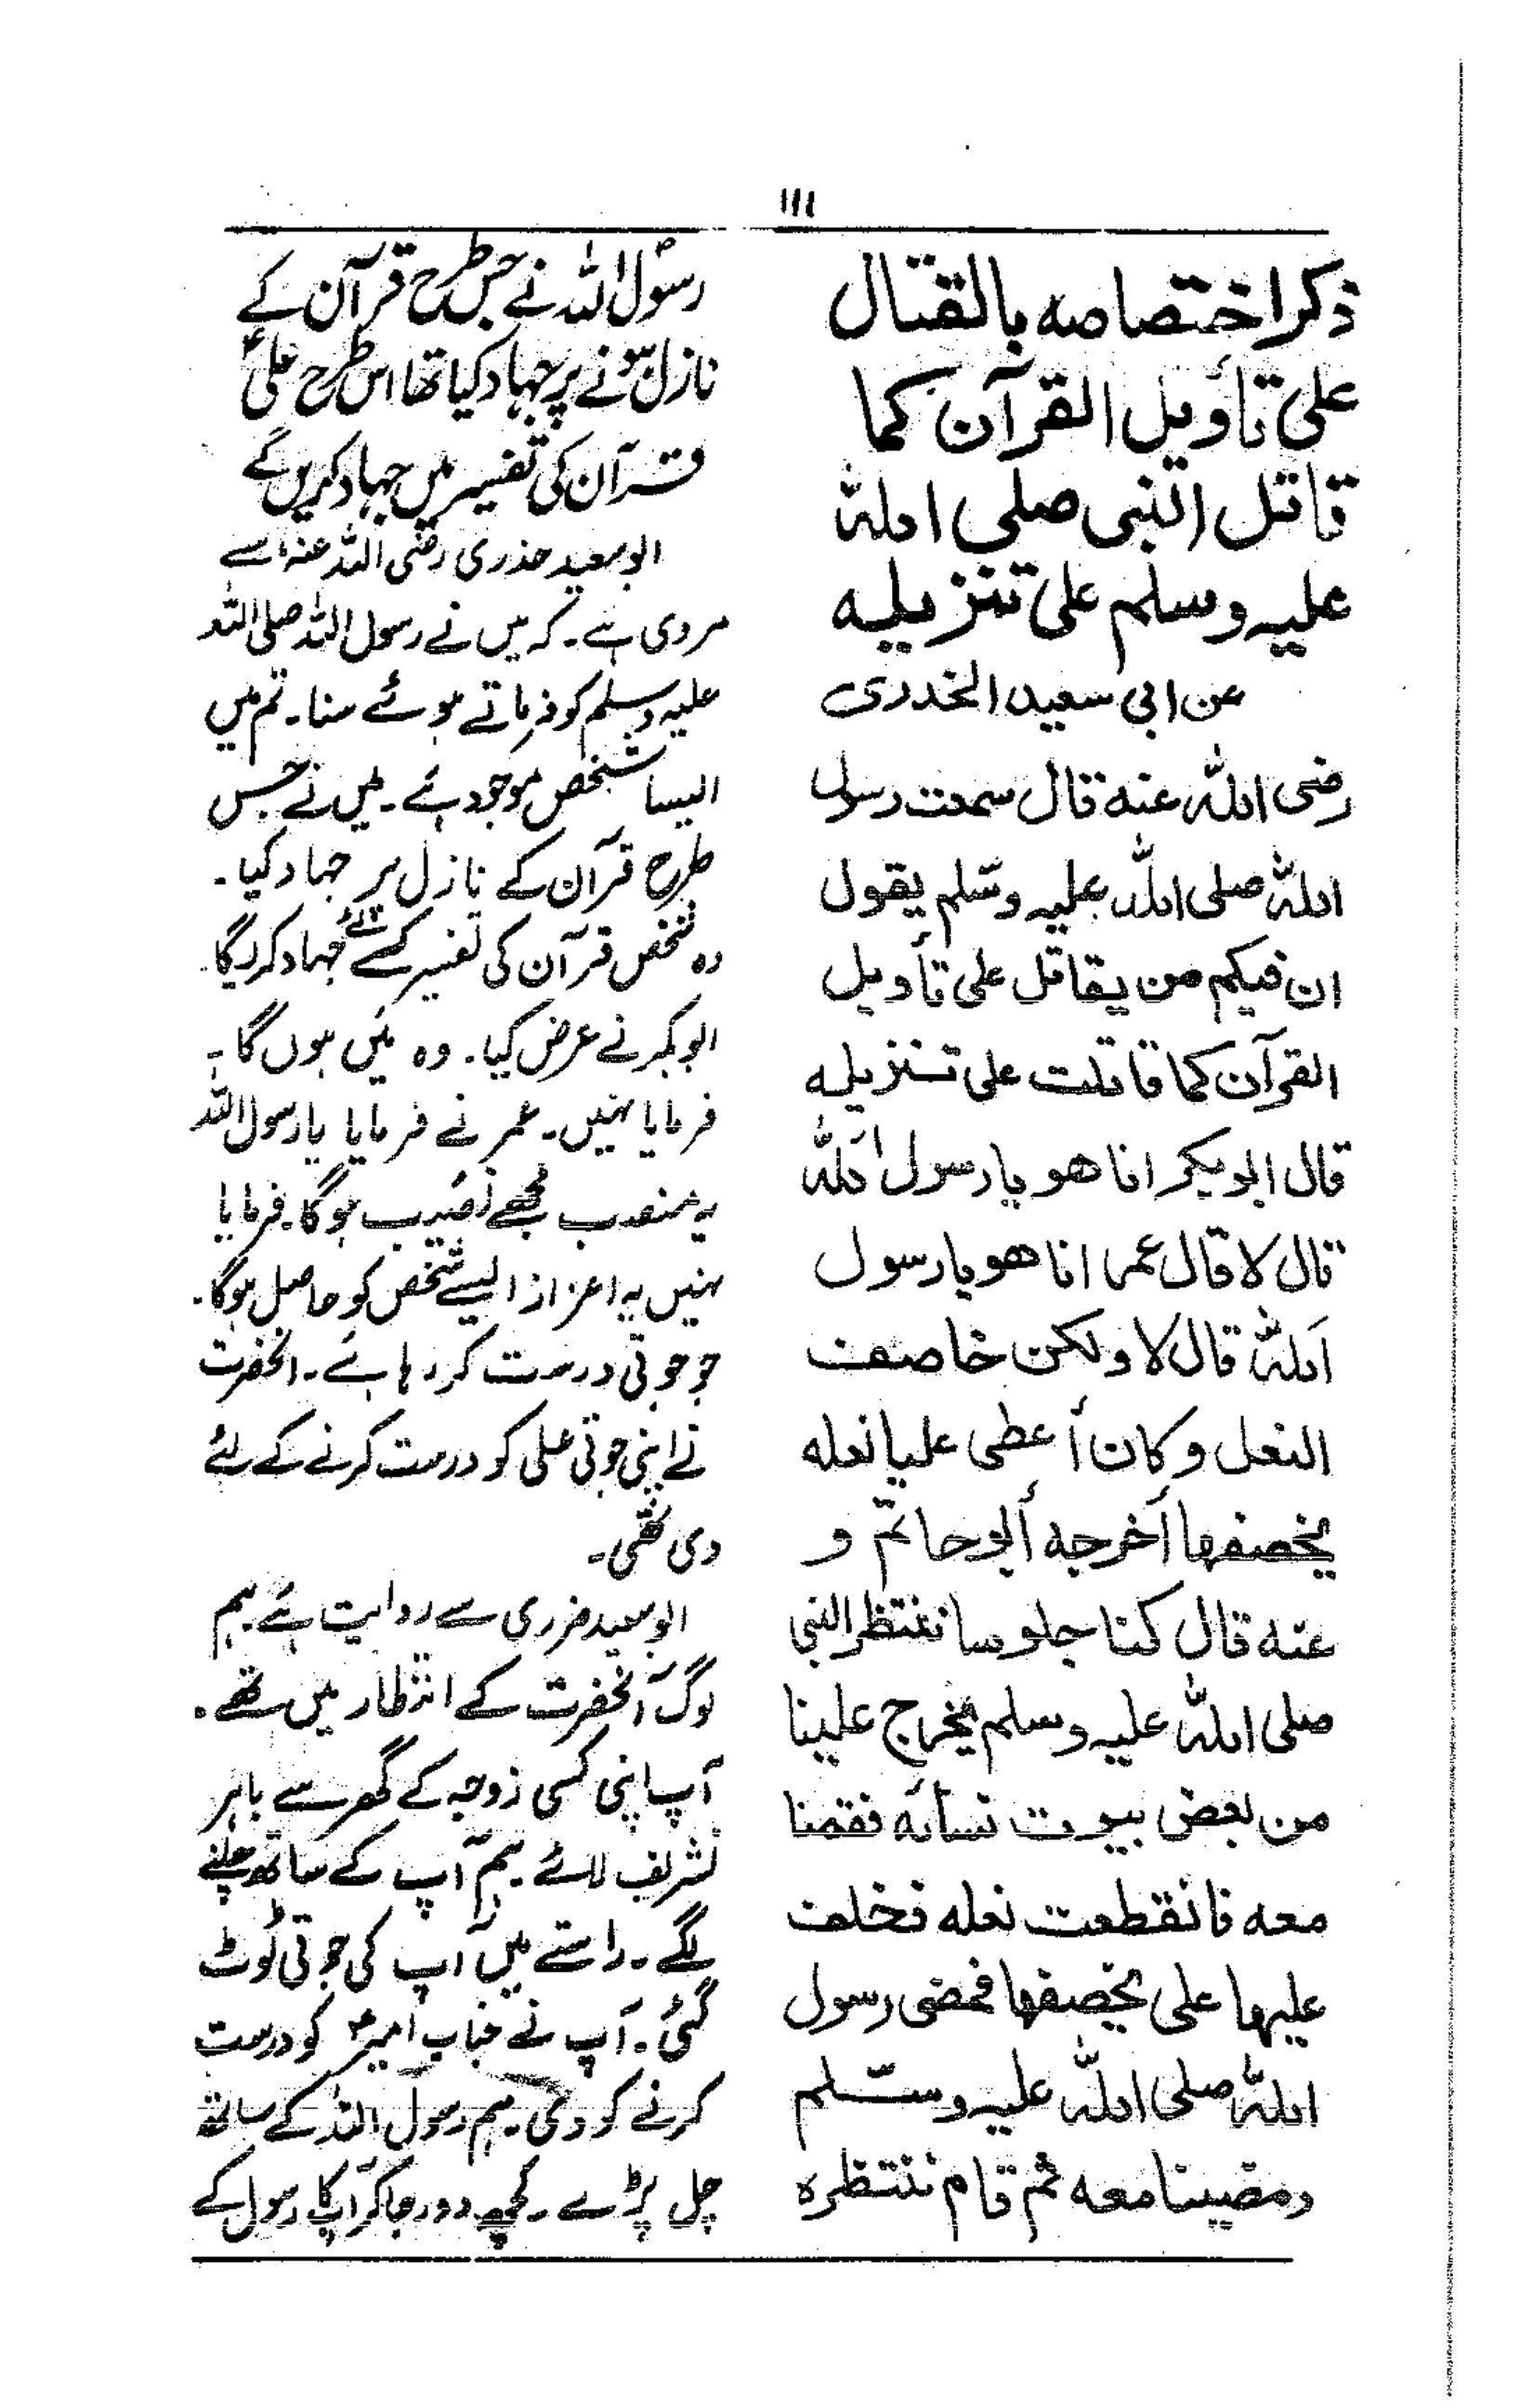 ۱۱۱
ذكر اختصاصه بالقتال
على تأويل القرآن كما
قاتل النبى صلى الله
عليه وسلم على تنزيله
عن ابي سعيد الخدرى
رضى الله عنه قال سمعت رسول
الله صلى الله عليه وسلم يقول
ان فيكم من يقاتل على تأويل
القرآن كما قاتلت على تنزيله
قال ابو بكر انا هو يا رسول الله
قال لا قال عمر انا هو يا رسول
الله قال لا ولكن خاصف
النعل وكان أعطى عليا نعله
يخصفها أخرجه أبو حاتم و
عنه قال كنا جلوسا ننتظر النبي
صلى الله عليه وسلم فخرج علينا
من بعض بيوت نسائه فقمنا
معه فانقطعت نعله فخلف
عليها على يخصفها فمضى رسول
الله صلى الله عليه وسلم
ومضينا معه ثم قام ننتظره
رسول اللہ نے جس طرح قرآن کے
نازل ہونے پر جہاد کیا تھا اس طرح علیؑ
قرآن کی تفسیر میں جہاد کریں گے
ابو سعید خذری رضی اللہ عنہ سے
مروی ہے۔ کہ میں نے رسول اللہ صلی اللہ
علیہ وسلم کو فرماتے ہوئے سنا۔ تم میں
ایسا شخص موجود ہے۔ میں نے جس
طرح قرآن کے نازل پر جہاد کیا۔
وہ شخص قرآن کی تفسیر کے لئے جہاد کریگا۔
ابوبکر نے عرض کیا۔ وہ میں ہوں گا۔
فرمایا نہیں۔ عمر نے فرمایا یا رسول اللہ
یہ منصب مجھے نصیب ہوگا۔ فرمایا
نہیں یہ اعزاز ایسے شخص کو حاصل ہوگا۔
جو جوتی درست کر رہا ہے۔ آنحضرت
نے اپنی جوتی علی کو درست کرنے کے لئے
دی تھی۔
ابو سعید خزری سے روایت ہے ہم
لوگ آنحضرت کے انتظار میں تھے۔
آپ اپنی کسی زوجہ کے گھر سے باہر
تشریف لائے ہم آپ کے ساتھ چلنے
لگے۔ راستے میں آپ کی جوتی ٹوٹ
گئی۔ آپ نے جناب امیرؑ کو درست
کرنے کو دی ہم رسول اللہ کے ساتھ
چل پڑے۔ کچھ دور جا کر آپ رسول کے